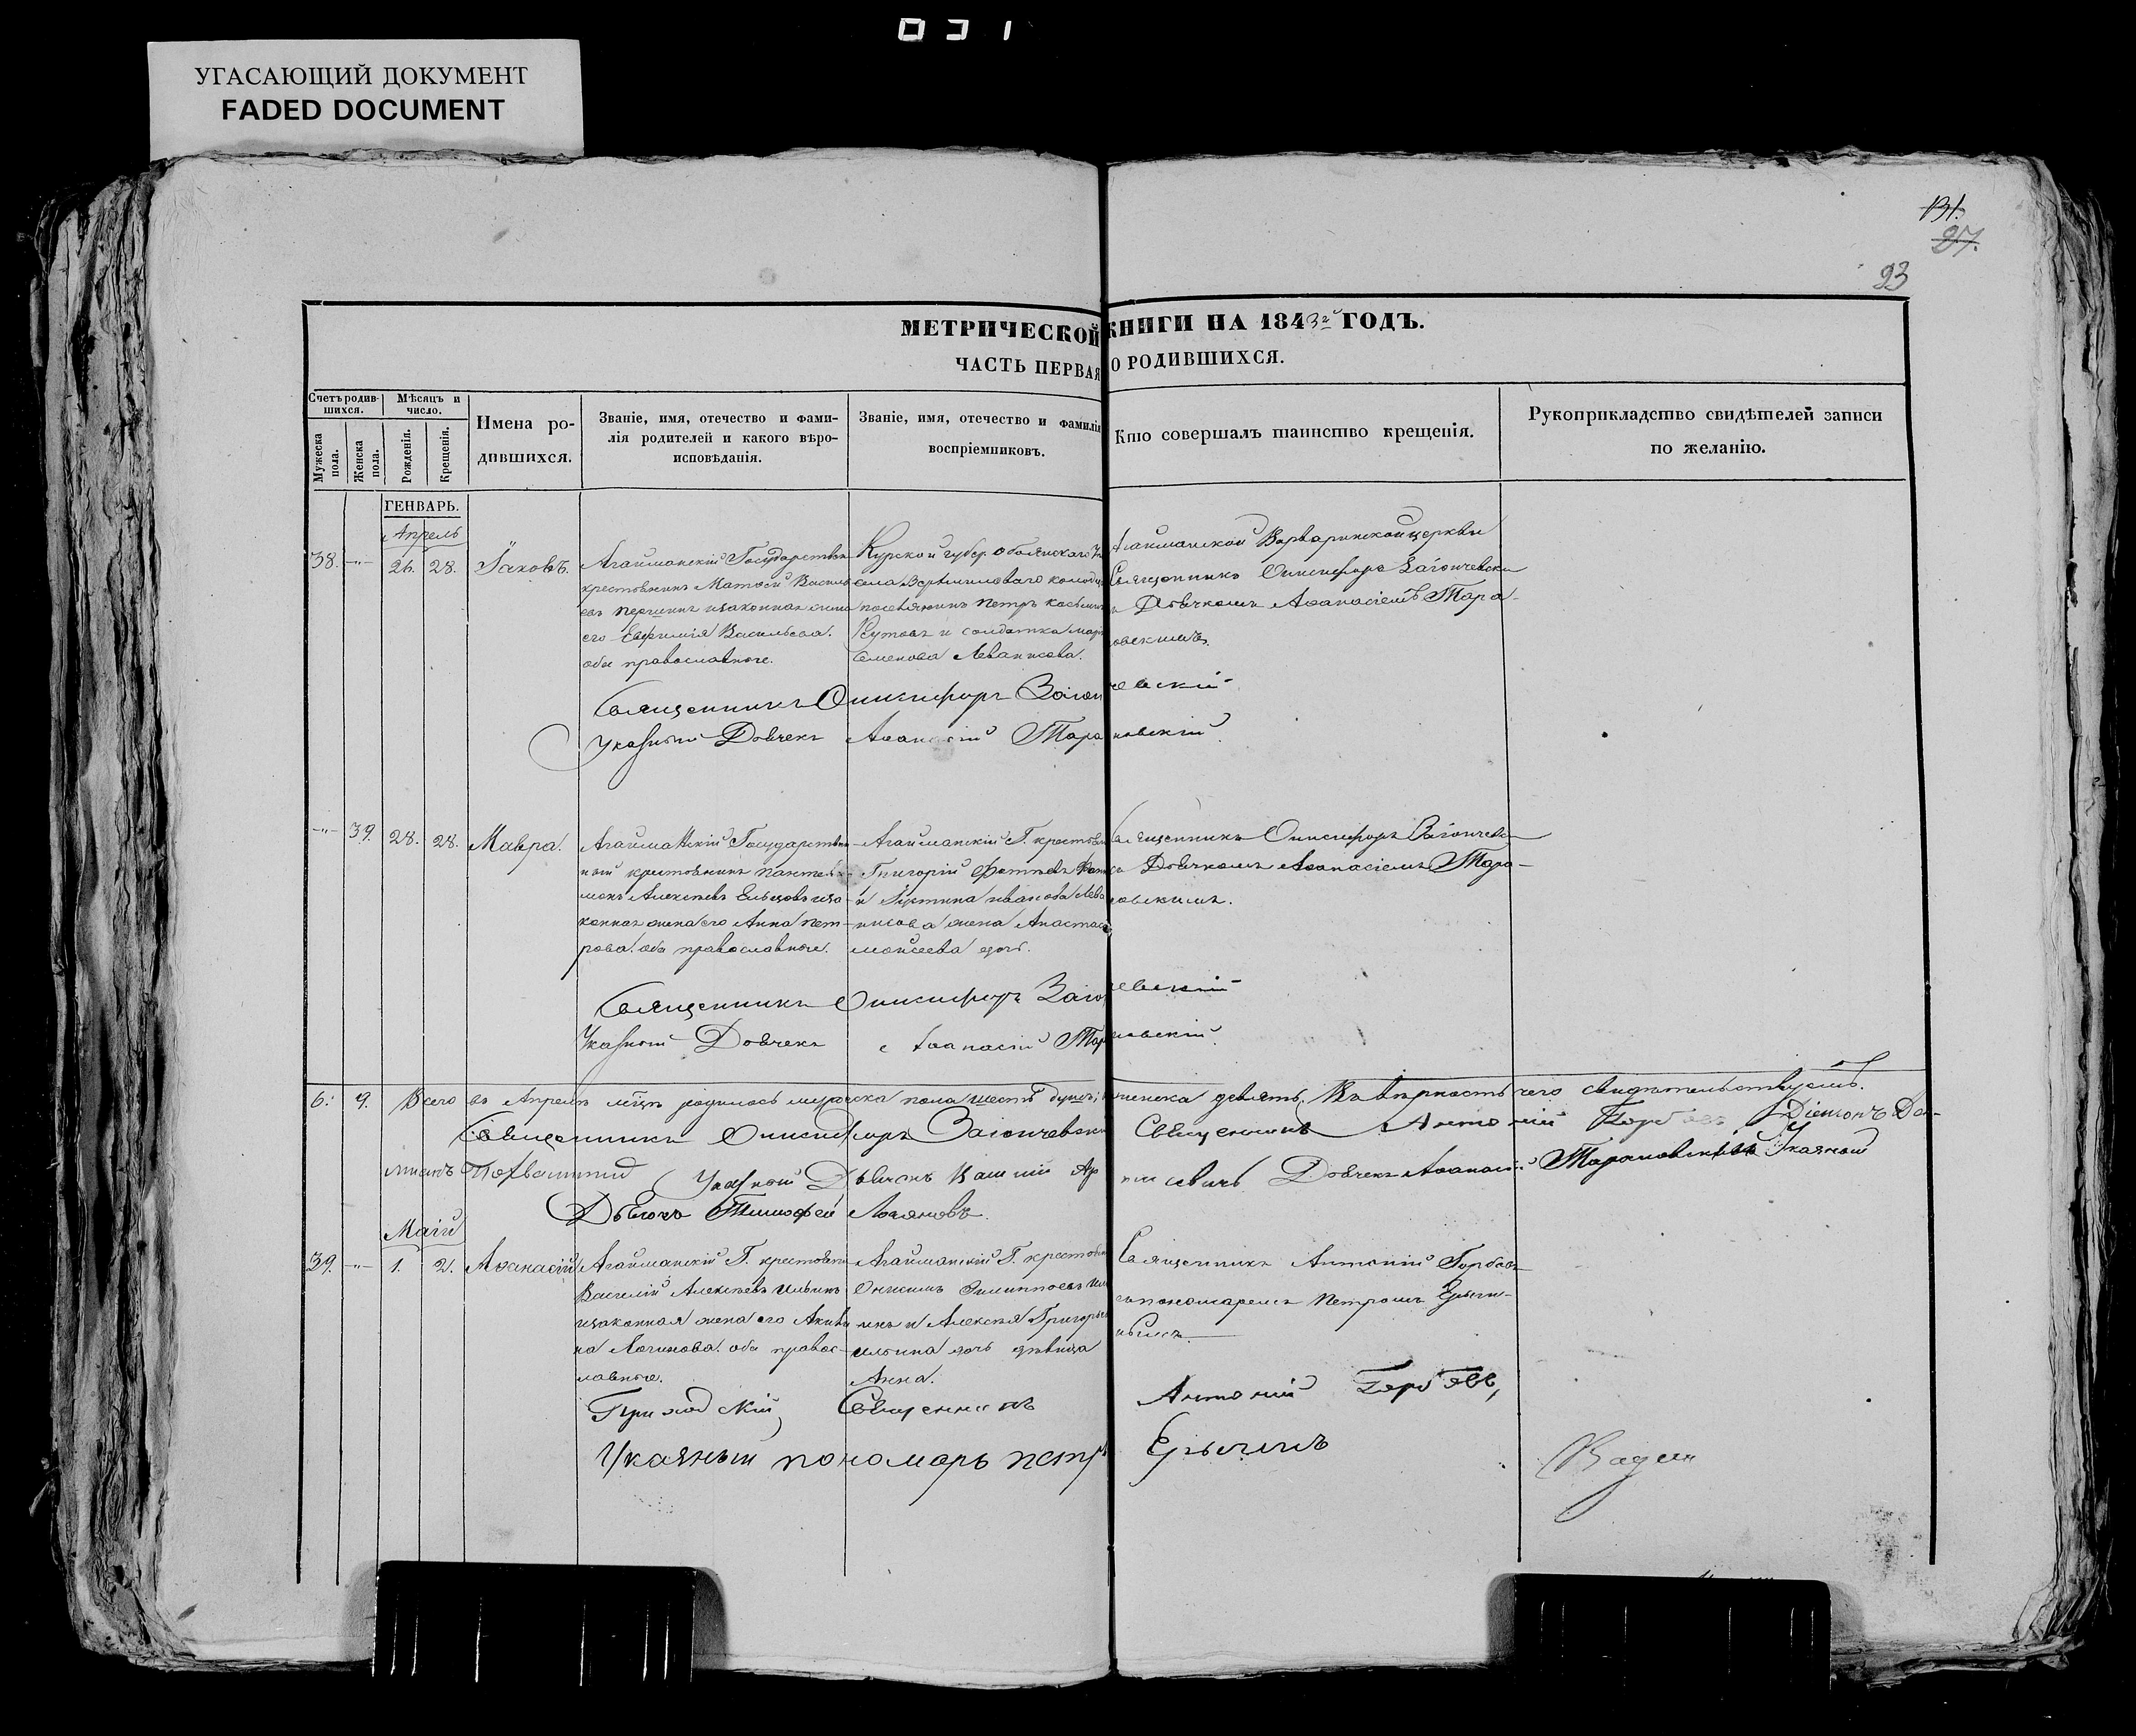 031
УГАСАЮЩИЙ ДОКУМЕНТ
FADED DOCUMENT
131.
27.
23
МЕТРИЧЕСКОЙ КНИГИ НА 1843й ГОДЪ.
ЧАСТЬ ПЕРВАЯ О РОДИВШИХСЯ.
Счетъ родив-
шихся.
Мужеска
пола.
Женска
пола.
Мѣсяцъ и
число.
Рожденія.
Крещенія.
Имена ро-
дившихся.
Званіе, имя, отечество и фами-
лія родителей и какого вѣро-
исповѣданія.
Званіе, имя, отечество и фамилія
воспріемниковъ.
Кто совершалъ таинство крещенія.
Рукоприкладство свидѣтелей записи
по желанію.
ГЕНВАРЬ.
Апрель
38.
26.
28.
Іаковъ.
Агайманскій Государствен
крестьянинъ Матѳей Василь
евъ изаконная жена
его Евфимія Васильева.
оба православные.
Курской губер. Обоянскаго
села
поселянинъ Петръ
Кутовъ и солдатка
Семенова Леванисова.
Агайманской Варваринской церкви
Священникъ Онисифоръ Загончевски
Дьячкомъ Аѳанасіемъ Тара-
овскимъ.
Священникъ Онисифоръ Загончевскій
Указный Дьячекъ Аѳанасій Тарановскій
39.
28.
28.
Мавра.
Агайманскій Государствен
ный крестьянинъ Пантелей
монъ Алексѣевъ иза
конная жена его Анна Пет-
рова. оба православные.
Агайманскій Г. крестьян
Григорій
и Іустина Иванова Лева
нисова жена Анастас
Моисеева дочь.
Священникъ Онисифоръ Загончевск
Дьячкомъ Аѳанасіемъ Тара-
новскимъ.
Священникъ Онисифоръ Загончевскій
Указной Дьячекъ Аѳанасій Тарановскій
6.
9.
Всего въ Апрелѣ мѣцѣ родилось мужеска пола шесть душъ; женска девять. Въ вѣрность чего свидѣтельствуемъ.
Священникъ Онисифоръ Загончевски Священникъ Антоній Горбовъ Діяконъ Да-
міанъ Указной Дьячокъ Дьячекъ Аѳанасій Тарановскій Указной
Дьячокъ Тимофей
Маій
39.
1.
2.
Аѳанасій
Агайманскій Г. крестьян
Василій Алексѣевъ Ильинъ
изаконная жена его Акили
на Логинова. оба правос-
лавные.
Агайманскій Г. крестьян
Онисимъ Филипповъ Иль
инъ и Алексѣя Григорьев
Ильина дочь дѣвица
Анна.
Священникъ Антоній Горбовъ
съ пономаремъ Петромъ Ерыги-
нымъ.
Приходскій Священникъ Антоній Горбовъ,
Указный пономарь Петръ Ерыгинъ